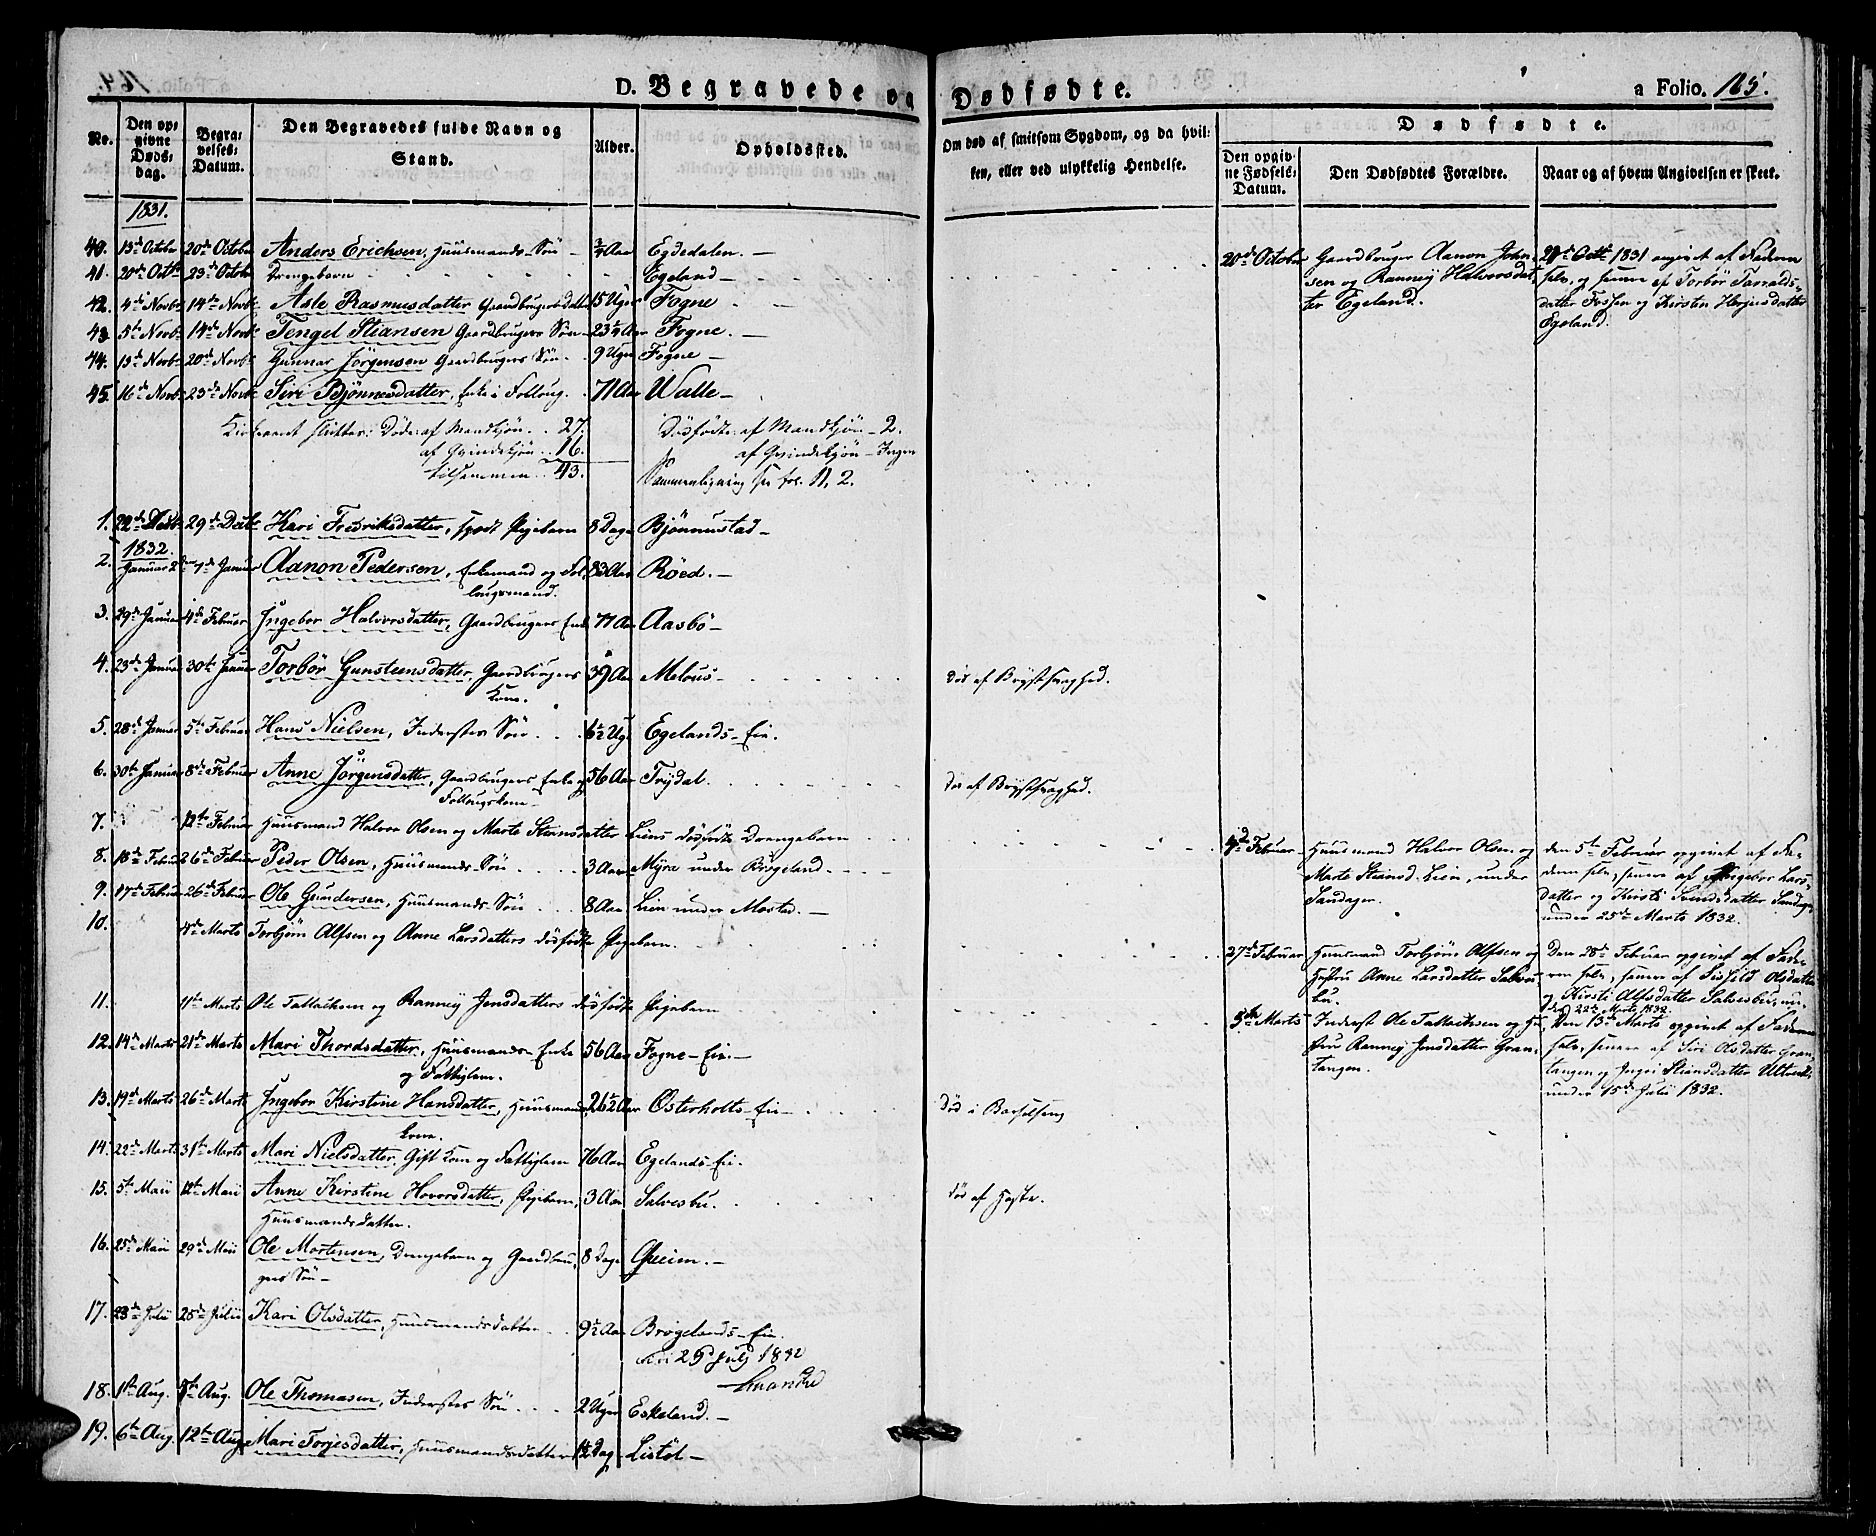 D. Begravede og Dødfødte.
a Folio. 165.
No.
Den opgivne Dødsdag.
Begravelses Datum.
Den Begravedes fulde Navn og Stand.
Alder.
Opholdssted.
Om død af smitsom Sygdom, og da hvilken, eller ved ulykkelig Hendelse.
Dødfødte.
Den opgivne Fødsels Datum.
Den Dødfødtes Forældre.
Naar og af hvem Angivelsen er skeet.
1831.
40. 13de Octobr 20de Octobr Anders Erichsen, Huusmands Søn Aar Egdedalen.
41. 20de Octb 23de Octobr Drengebarn Egeland
20de Octobr Gaardbruger Aanon Johnsen og Ranney Halvorsdatter Egeland.
1831 angivet af Faderen selv, og senere af Torbør Tarraldsdatter Fossen og Kirsten Egeland.
42. 4de Novbr 14de Novbr Asle Rasmusdatter Gaardbrugersdatt 15 Uger Fogne
43 5te Novbr 14de Novbr Tengel Stiansen Gaardbrugers Søn 23 Aar Fogne.
44. 13de Novbr 20de Novbr Gunnar Jørgensen Gaardbrugers Søn 9 Uger Fogne
45. 16de Novbr 23de Novbr Siri Bjønnesdatter, Enke i Følloug. 71 Aar Walle
Kirkeaaret slutter: Døde: af Mandkjøn 27.
af Qvindekjøn 16.
tilsammen 43.
Dødfødte: af Mandkjøn 2.
af Qvindekjøn Ingen
Sammenligning fol. N. 2.
1. 22de 29de Decbr Kari Fredriksdatter, spædt Pigebarn 8 Dage Bjønnustad
1832.
2. Januar 2de 7de Januar Aanon Pedersen, Enkemand og Følougsmand. 83 Aar Røed.
3. 29de Januar 4de Februar Ingebor Halvorsdatter, Gaardbrugers Enke 77 Aar Aasbø
4. 23de Januar 30te Januar Torbør Gunsteensdatter, Gaardbrugers Kone. 39 Aar Melaas død af Brystsvaghed.
5. 28de Januar 5te Februar Hans Nielsen, Inderstes Søn 6½ Ug. Egelands-Eie.
6. 30te Januar 8de Februar Anne Jörgensdatter, Gaardbrugers Enke og Føllougskone 56 Aar Trydal. død af Brystsvaghed.
7. 12te Februar Huusmand Halvor Olsen og Marte Steansdatter Liens dødfødte Drengebarn
4de Februar Huusmand Halvor Olsen og Marte Steansd. Lien, under Sandager.
den 5te Februar opgivet af Faderen selv, senere af Ingebor Larsdatter og Kirsti Svendsdatter under 25de Marts 1832.
8. 18de Februar 26de Februar Peder Olsen, Huusmands Søn 3 Aar Myra under Brøgeland
9. 17de Februar 26de Februar Ole Gundersen, Huusmands Søn 8 Aar Lien under Mostad.
10. 4de Marts Torbjørn Alfsen og Anne Larsdatters dødfødte Pigebarn.
27de Februar Huusmand Torbjørn Alfsen og Hustru Anne Larsdatter Salvesbu.
Den 28de Februar opgivet af Faderen selv, senere af Olsdatter og Kirsti Alfsdatter Salvesbu, under 22de Marts 1832.
11. 11te Marts Ole Tallaksen og Ranney Jensdatters dødfødte Pigebarn
5te Marts Inderst Ole Tallaksen og Hustru Ranney Jensdatter Grantangen.
Den 13de Marts opgivet af Faderen selv, senere af Siri Olsdatter Grantangen og Ingri Steansdatter under 15de Julii 1832.
12. 14de Marts 21de Marts Mari Thordsdatter, Huusmands-Enke og Fattiglem. 56 Aar Fogne-Eie.
13. 19de Marts 26de Marts Ingebor Kirstine Hansdatter, Huusmandskone. 26½ Aar Österholts-Eie død i Barselseng
14. 22de Marts 31te Marts Mari Nielsdatter, Gift Kone og Fattiglem 76 Aar Egelands-Eie.
15. 5te Maii 12te Maii Anne Kirstine Hovorsdatter, Pigebarn, Huusmandsdatter. 3 Aar Salvesbu. død af Hoste.
16. 25de Maii 29de Maii Ole Mortensen, Drengebarn og Gaardbrugers Søn 8 Dage Qveim.
17. 23de Julii 25de Julii Kari Olsdatter, Huusmandsdatter 9½ Aar Brøgelands-Eie.
25 July 1832
18. 1te Aug. Aug. Ole Thomasen, Inderstes Søn 2 Uger Eskeland.
19. 6te Aug. 12te Aug. Mari Torjesdatter, Huusmandsdatter Dage Listöl